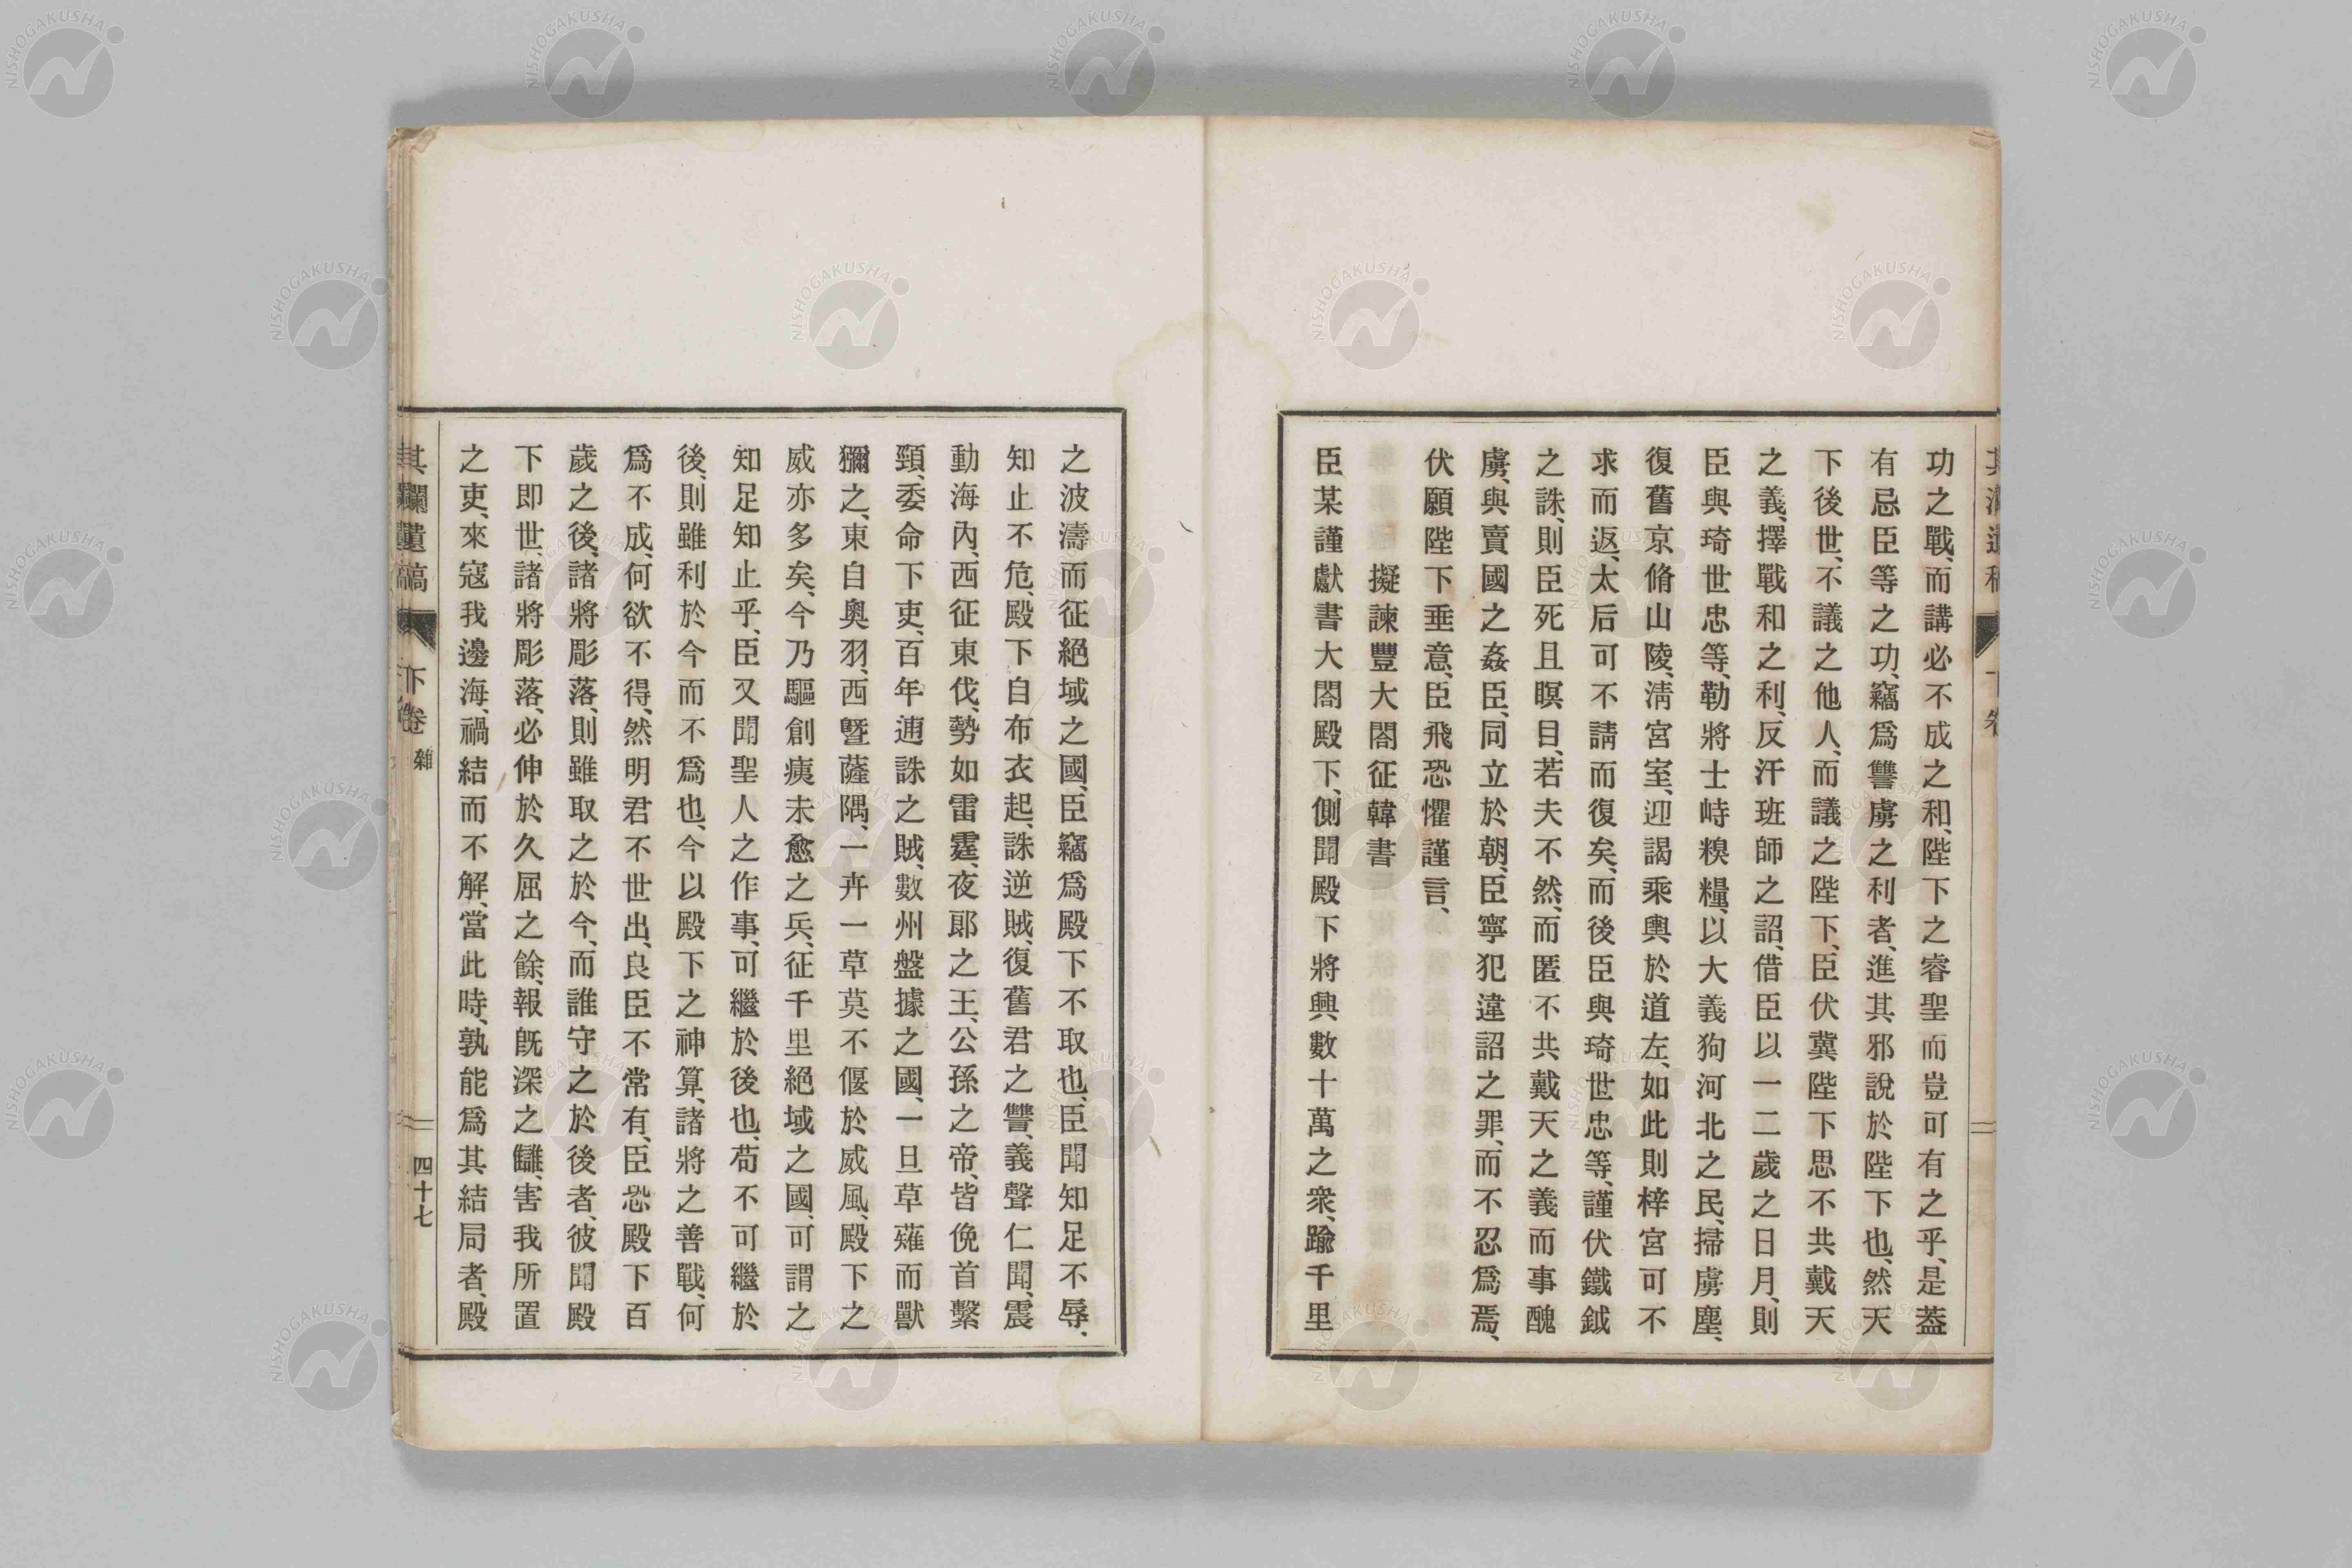 功之戰、而講必不成之和、陛下之睿聖而豈可有之乎、是蓋
有忌臣等之功、竊爲讐虜之利者、進其邪說於陛下也、然天
下後世、不議之他人、而議之陛下、臣伏冀陛下思不共戴天
之義、擇戰和之利、反汗班師之詔、借臣以一二歲之日月、則
臣與琦世忠等、勒將士峙糗糧、以大義狗河北之民、掃虜塵、
復舊京脩山陵、淸宮室、迎謁乘輿於道左、如此則梓宮可不
求而返、太后可不請而復矣、而後臣與琦世忠等、謹伏鐵鉞
之誅、則臣死且瞑目、若夫不然、而匿不共戴天之義而事醜
虜、與賣國之姦臣、同立於朝、臣寧犯違詔之罪、而不忍爲焉、
伏願陛下垂意、臣飛恐懼謹言、
擬諫豐大閤征韓書
臣某謹獻書大閤殿下、側聞殿下將興數十萬之衆、踰千里
之波濤而征絕域之國、臣竊爲殿下不取也、臣聞知足不辱、
知止不危、殿下自布衣起、誅逆賊、復舊君之讐、義聲仁聞、震
動海內、西征東伐、勢如雷霆、夜郞之王、公孫之帝、皆俛首繫
頸、委命下吏、百年逋誅之賊、數州盤據之國、一旦草薙而獸
獮之、東自奧羽、西曁薩隅、一卉一草莫不偃於威風、殿下之
威亦多矣、今乃驅創痍未愈之兵、征千里絕域之國、可謂之
知足知止乎、臣又聞聖人之作事、可繼於後也、苟不可繼於
後、則雖利於今而不爲也、今以殿下之神算、諸將之善戰、何
爲不成、何欲不得、然明君不世出、良臣不常有、臣恐殿下百
歲之後、諸將彫落、則雖取之於今、而誰守之於後者、彼聞殿
下卽世、諸將彫落、必伸於久屈之餘、報旣深之讎、害我所置
之吏、來寇我邊海、禍結而不解、當此時、孰能爲其結局者、殿
其瀾遺稿 下卷 雜 四十七